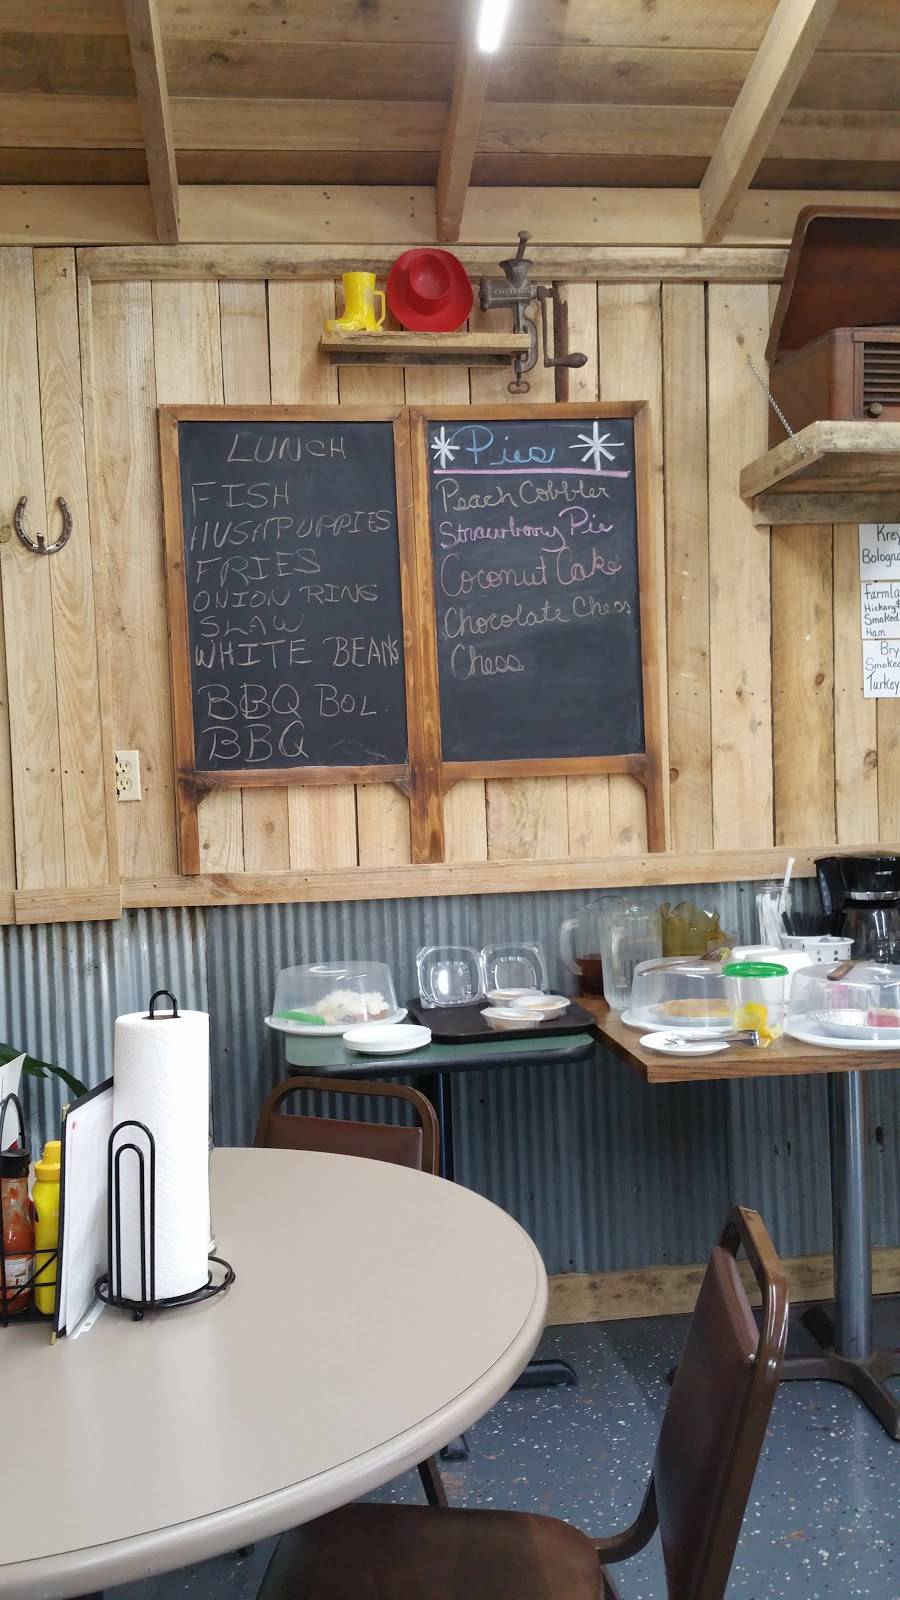 LUNCH
FISH
HUSHPUPPIES
FRIES
ONION RING
SLAW
WHITE BEANS
BBQ BOL.
BBQ
Pies
Peach Cobbler
Strawberry Pie
Coconut Cake
Chocolate Chess
Chess
Krey
Bologna
Farmla
Hickory
Smoked
Ham
Bry
Smoked
Turkey